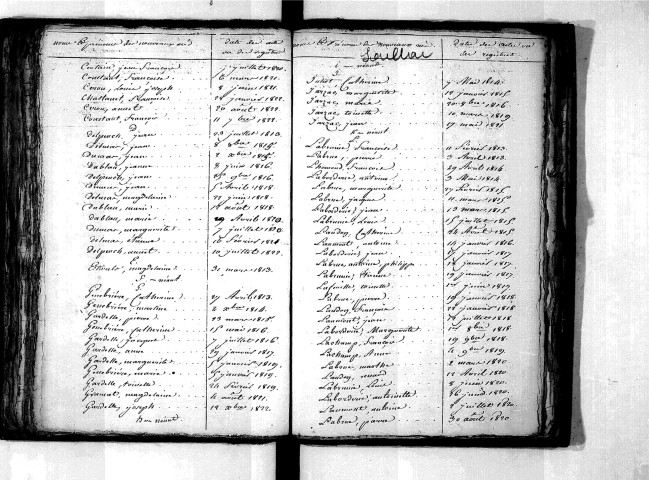 noms et prénoms des nouveaux nés date des actes ou des registres
Constant, françoise 6 mars 1821.
Ceron, Louise joseph 8 juin 1821.
Chastanet, françoise
Ceron, annet 20 août 1822.
Constant, françois 11 7bre 1822.
D
Delpeuch, jean 23 juillet 1813.
Delmas, jean 8 8bre 1815.
Dumas, jean 2 xbre 1815.
Dablat, jeanne 8 juin 1816.
Delpeuch, jean 9bre 1816.
Dumas, jean 5 Avril 1818.
Delmas, magdelaine 22 juin 1818.
Dablan, marie août 1818.
Dablan, marie 29 Avril 1820.
Dumas, marguerite 7 juillet 1820.
Delmas, étienne 16 février 1821.
Delpeuch, annet 10 juillet 1822.
E
magdelaine 31 mars 1813.
F = néant
G
Genebrière, Catherine 27 Avril 1813.
Genebrière, martine 2 xbre 1814.
Gardelle, pierre 23 mars 1815.
Genebrière, catherine 15 mai 1816.
Gardelle, jacques 7 juillet 1816.
Gardelle, anne 29 janvier 1817.
Gardelle, marguerite janvier 1819.
Genebrière, marie janvier 1819.
Gardelle, toinette 24 février 1819.
Granat, magdelaine 4 août 1821.
Gardelle, joseph 12 xbre 1822.
H = néant
noms et prénoms des nouveaux nés date des actes ou des registres
I = néant
J
Juliet, Catherine 7 Mai 1814.
Jarzac, marguerite 28 janvier 1815.
Jarzac, marie 20 8bre 1816.
Jarzac, toinette 10 mars 1819.
Jarzac, jean 17 mai 1821.
K = néant
L
Labrunie, françoise 11 février 1813.
Labrue, pierre 3 Avril 1813.
françoise 29 Avril 1814.
Laborderie, antoine 3 Mai 1814.
Labrue, marguerite 27 février 1815.
Labrue, jacques 11 mars 1815.
Laborderie, jean 13 mars 1815.
Labrunie, Louise 15 juillet 1815.
Landey, Catherine 24 Août 1815.
Laumont, antoine 14 janvier 1816.
Laborderie, jean janvier 1817.
Labrue, antoine philippe janvier 1817.
Labrunie, étienne 19 janvier 1817.
Lafeuille, toinette juin 1817.
Labrue, pierre 19 janvier 1818.
Landey, françoise 22 janvier 1818.
Laumont, jean juillet 1818.
Laborderie, Marguerite 8bre 1818.
Lachamp, françois 19 9bre 1818.
Lachamp, Anne 4 9bre 1819.
Labrue, marthe 2 mars 1820.
Landey, 12 Avril 1820.
Labrunie, Louise 8 juin 1820.
Laborderie, antoinette 26 juin 1820.
Laumont, antoine 2 juillet 1820.
Labrue, pierre 30 août 1820